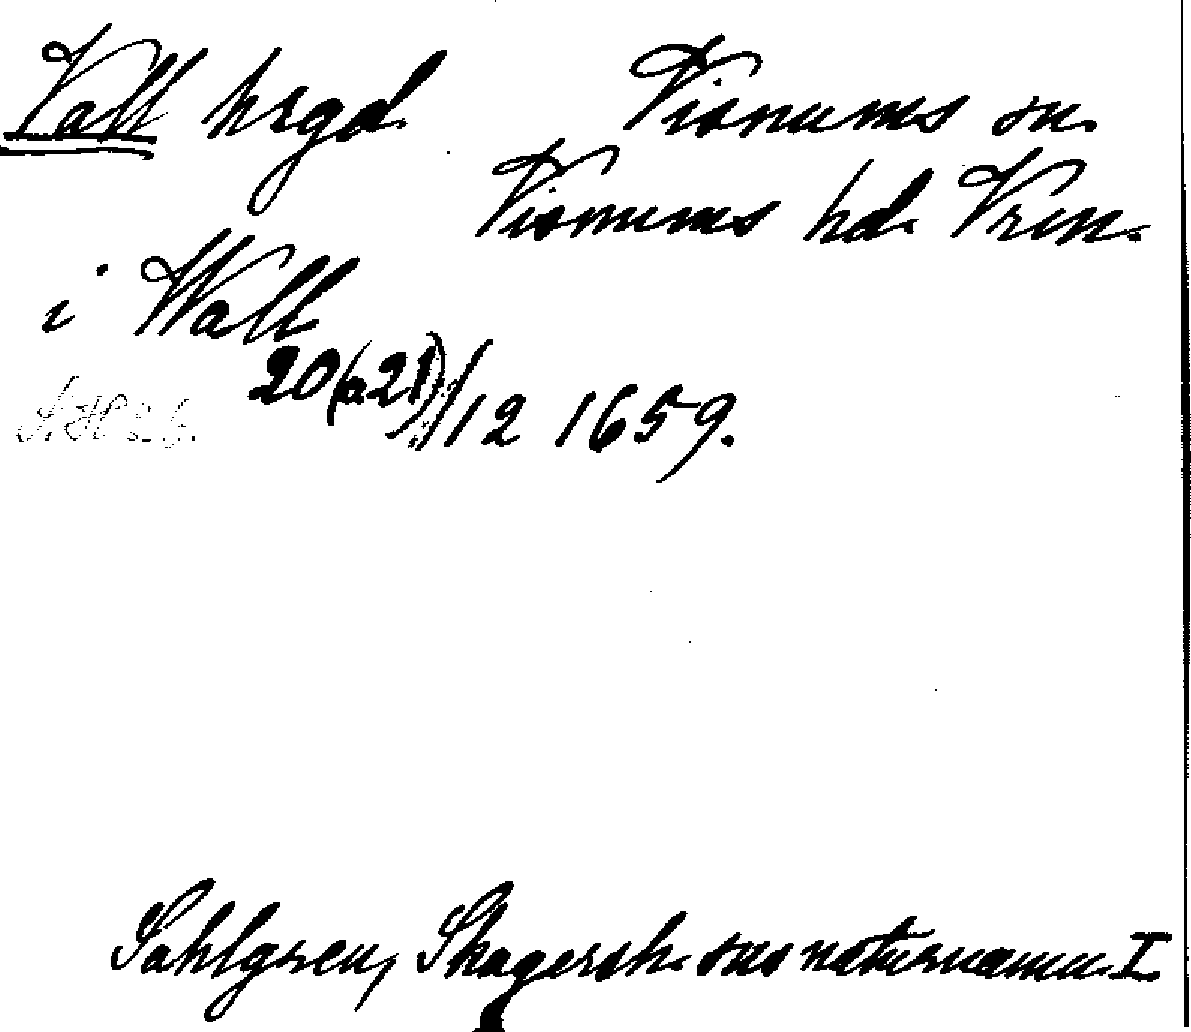 Vall hrgd. Visnums sn.
Visnums hd. Vrml.
i Wall
20(a21)/12 1659.
Sahlgren, Skagersh. sns naturnamn I